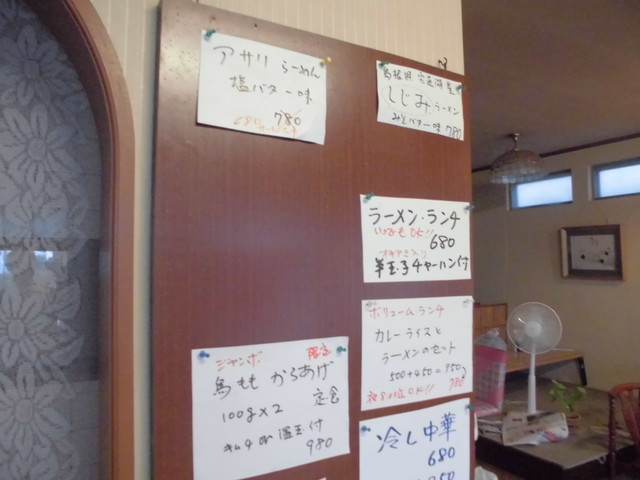 アサリ らーめん
塩バター味
780
680
島根県 宍道湖産
しじみラーメン
みそバター味 780
ラーメン・ランチ
680
半玉子チャーハン付
ボリューム・ランチ
カレーライスと
ラーメンのセット
500+450=950
780
ジャンボ 限定
鳥もも からあげ
100g×2 定食
キムチ or 温玉付
980
冷し中華
680